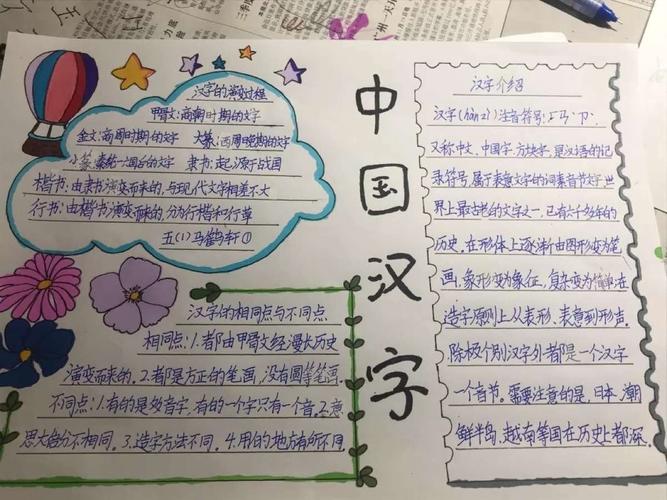 汉字的演变过程
甲骨文:商朝时期的文字
金文:商周时期的文字 大篆:西周晚期的文字
小篆:秦统一六国后的文字 隶书:起源于战国
楷书:由隶书演变而来的,与现代文字相差不大
行书:由楷书演变而来的,分为行楷和行草
五(1)马鹤轩①
中国汉字
汉字介绍
汉字(hàn zì)注音符号:ㄏㄢˋ ㄗˋ.
又称中文、中国字、方块字,是汉语的记
录符号,属于表意文字的词素音节文字,世
界上最古老的文字之一,已有六千多年的
历史。在形体上逐渐由图形变为笔
画,象形变为象征,复杂变为简单;在
造字原则上从表形、表意到形声。
除极个别汉字外都是一个汉字
一个音节。需要注意的是,日本、朝
鲜半岛、越南等国在历史上都深
汉字的相同点与不同点
相同点:1.都由甲骨文经漫长历史
演变而来的。2.都是方正的笔画,没有圆等笔画
不同点:1.有的是多音字,有的一个字只有一个音。2.意
思大部分不相同。3.造字方法不同。4.用的地方有所不同